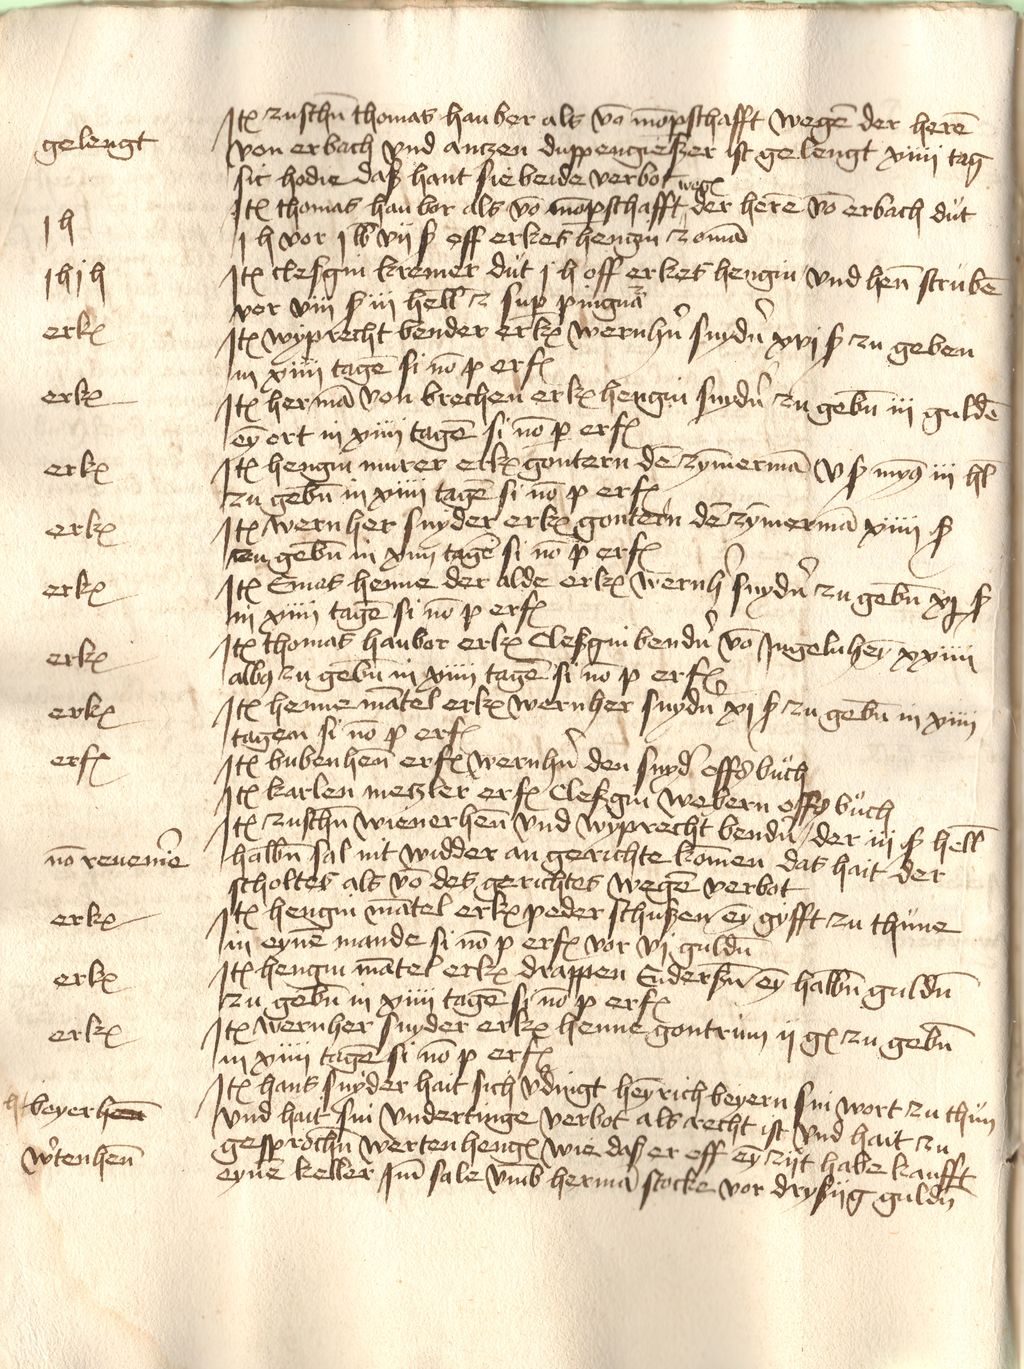 gelengt
Itẽ zuschñ thomas hauber als võ mõpschafft wegẽ der herẽ
von erbach vnd antzen duppengießer ist gelengt xiiii tag
sic hodie daß hant sie beide verbot
I h
Itẽ thomas haubor als võ mõpschafft wegẽ der herẽ võ erbach dút
I h vor I lb vii ß off erkes hengin z omã
I h I h
Itẽ clesgin kremer dút I h off erkes hengin vnd heñ strúbẽ
vor viii ß iii hell z sup pinguã
erkẽ
Itẽ wyprecht bender erkẽ wernhñ snydñ xvi ß zu geben
in xiiii tagẽ si nõ p erfẽ
erkẽ
Itẽ hermã von brechen erkẽ hengin snydñ zu gebñ iii guldẽ
eỹ ort in xiiii tagẽ si nõ p erfẽ
erkẽ
Itẽ hengin murer erkẽ gontern dẽ zỹmermã v ß mỹ9 iii hl
zu gebñ in xiiii tagẽ si nõ p erfẽ
erkẽ
Itẽ wernher snyder erkẽ gontern dẽ zỹmermã xiiii ß
zu gebñ in xiiii tagẽ si nõ p erfẽ
erkẽ
Itẽ Emes henne der alde erkẽ wernh snydñ zu gebñ xj ß
in xiiii tagẽ si nõ p erfẽ
erkẽ
Itẽ thomas haubor erkẽ Clesgin bendñ võ Ingelnheỹ xxiiii
alb9 zu gebñ in xiiii tagẽ si nõ p erfẽ
erkẽ
Itẽ henne mãtel erkẽ wernher snydñ xi ß zu gebñ in xiiii
tagen si nõ p erfẽ
erfẽ
Itẽ bubenheñ erfẽ wernhñ den snyd offs búch
Itẽ karlen metzler erfẽ Clesgin webern offs búch
nõ reuenire
Itẽ zuschñ wienerheñ vnd wyprecht bendñ der iii ß hell
halbñ sal nit widder an gerichte kõmen das hait der
scholtes als võ des gerichtes wegẽ verbot
erkẽ
Itẽ hengin mãtel erkẽ peder schutzen eỹ gyfft zu thúne
in eynẽ mande si nõ p erfẽ vor vi guldñ
erkẽ
Itẽ hengin mãtel erkẽ drappen Endersñ eỹ halbñ guldñ
zu gebñ in xiiii tagẽ si nõ p erfẽ
erkẽ
Itẽ wernher snyder erkẽ henne gontrúm ii gẽ zu gebñ
in xiiii tagẽ si nõ p erfẽ
beyerheñ
Itẽ hans snyder hait sich vdingt heỹrich beyern sin wort zu thún
vnd hait sin vndertinge verbot als recht ist vnd hait zu
wtenheñ
gesprochñ werten hengẽ wie daß er off eỹ zijt habe kaufft
eynẽ keller Im sale vmb hermã stocke vor dryßijg guldñ